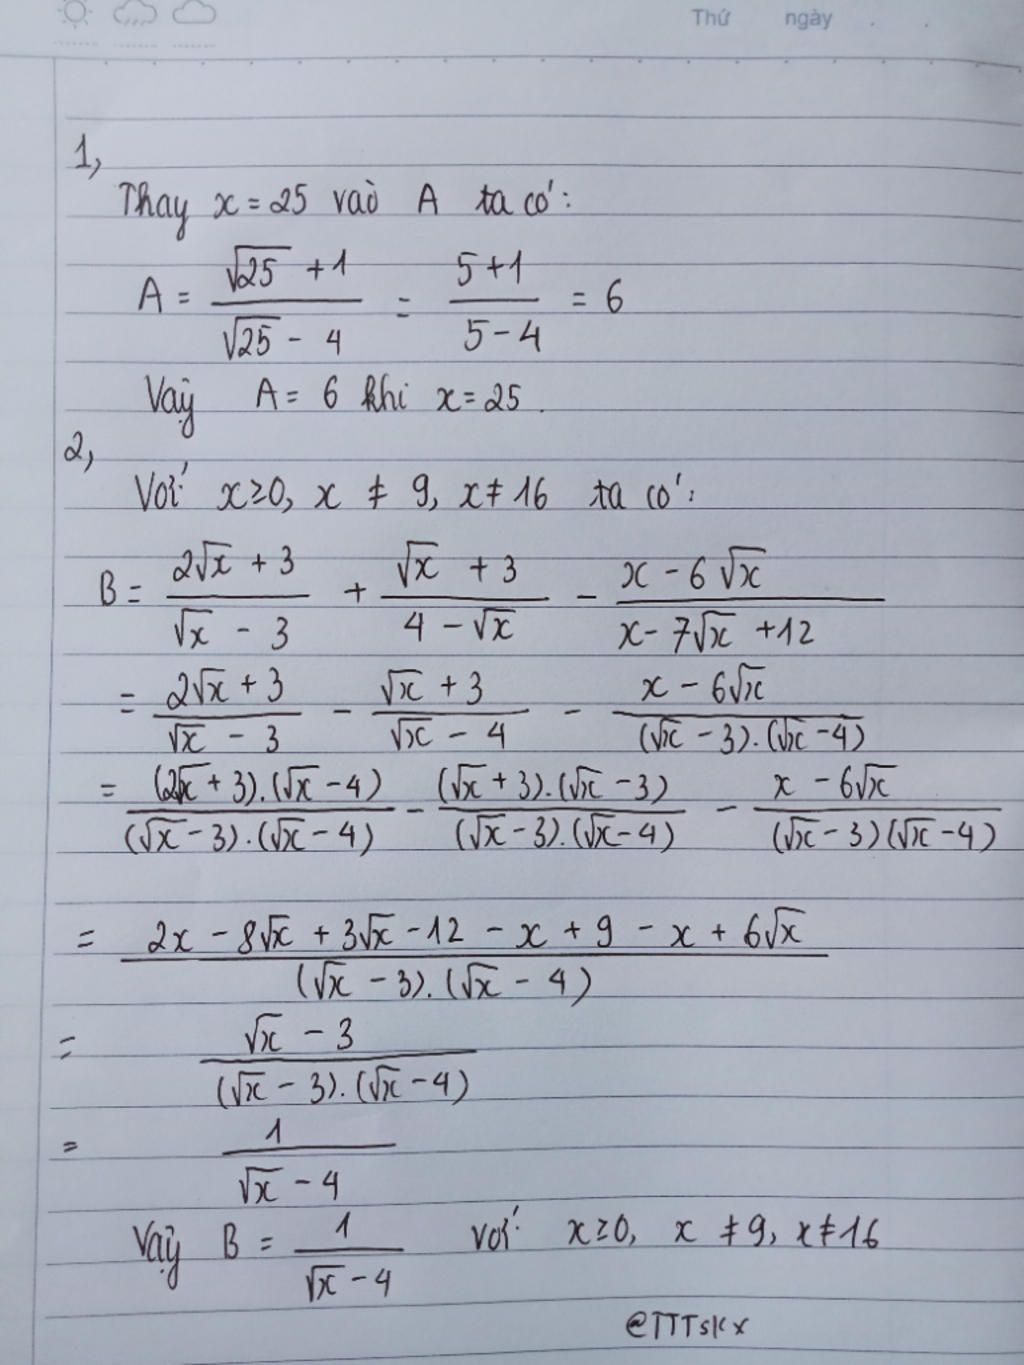 Thứ ngày
1,
Thay x = 25 vào A ta có:
A = (√25 + 1)/(√25 - 4) = (5 + 1)/(5 - 4) = 6
Vậy A = 6 khi x = 25.
2,
Với x ≥ 0, x ≠ 9, x ≠ 16 ta có:
B = (2√x + 3)/(√x - 3) + (√x + 3)/(4 - √x) - (x - 6√x)/(x - 7√x + 12)
= (2√x + 3)/(√x - 3) - (√x + 3)/(√x - 4) - (x - 6√x)/((√x - 3).(√x - 4))
= ((2√x + 3).(√x - 4))/((√x - 3).(√x - 4)) - ((√x + 3).(√x - 3))/((√x - 3).(√x - 4)) - (x - 6√x)/((√x - 3)(√x - 4))
= (2x - 8√x + 3√x - 12 - x + 9 - x + 6√x)/((√x - 3).(√x - 4))
= (√x - 3)/((√x - 3).(√x - 4))
= 1/(√x - 4)
Vậy B = 1/(√x - 4) với x ≥ 0, x ≠ 9, x ≠ 16
@TTTskx